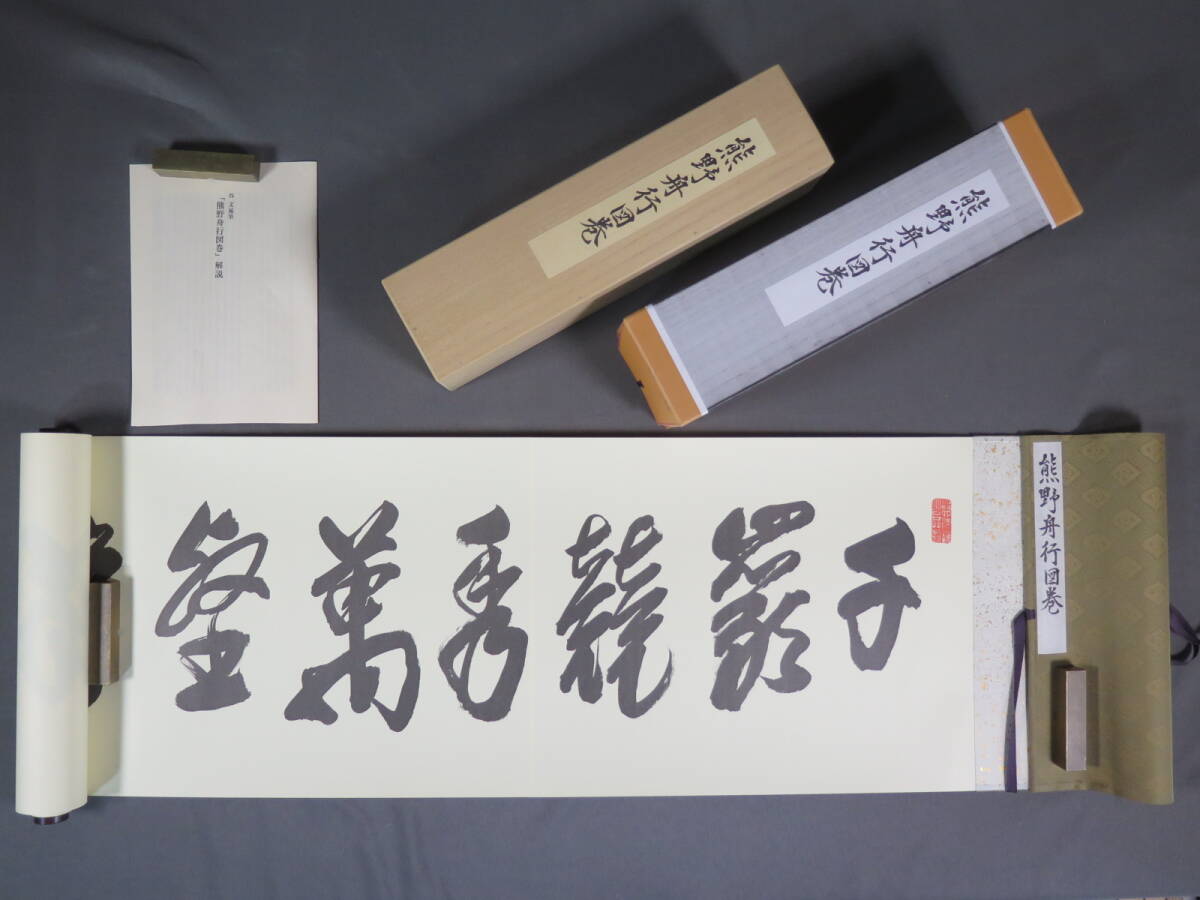 熊野舟行図巻
熊野舟行図巻
「熊野舟行図巻」解説
熊野舟行図巻
千巖競秀萬壑